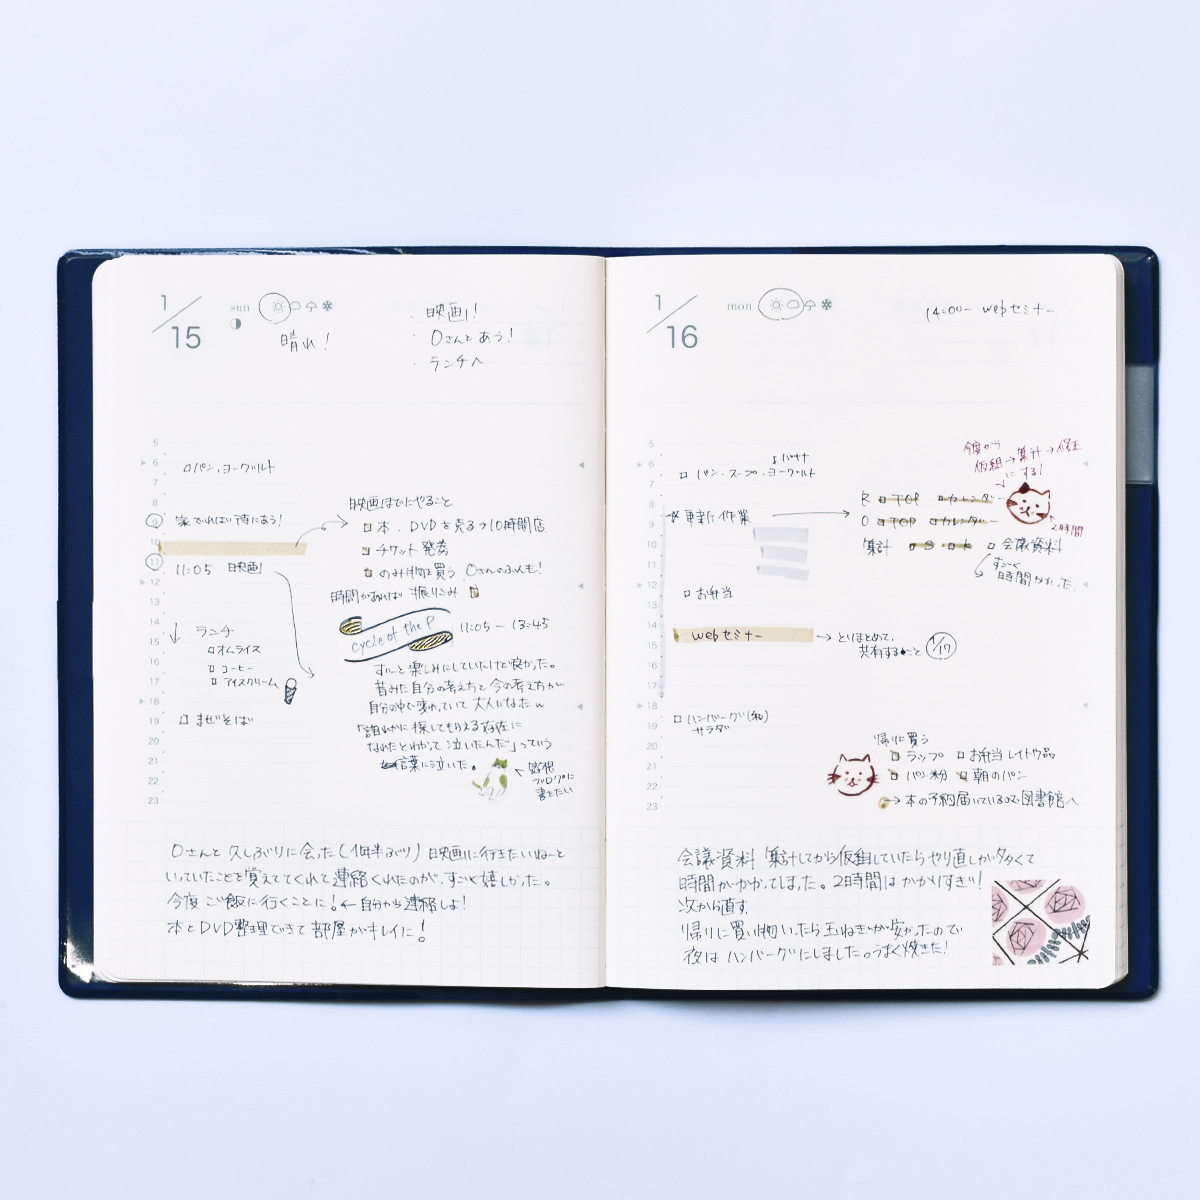 1/15
sun
晴れ!
・映画!
・Oさんとあう!
・ランチへ
5
6
パン、ヨーグルト
7
8
9
10
11
11:05 映画!
12
13
14
15
16
17
18
19
20
21
22
23
映画までにやること
本、DVDを売る→10時開店
チケット発券
のみ物を買う Oさんのぶんも!
時間があれば 振りこみ
cycle of the P
11:05 - 13:45
ずーっと楽しみにしていたけど良かった。
昔みた自分の考え方と今の考え方が
自分の中で変わっていて大人になったw
「誰かに探してもらえる存在に
なれたとわかって泣いたんだ」っていう
言葉に泣いた。
感想
ブログに
書きたい
ランチ
オムライス
コーヒー
アイスクリーム
まぜそば
Oさんと久しぶりに会った(1年半ぶり) 映画に行きたいねーと
いっていたことを覚えててくれて連絡くれたのが、すごく嬉しかった。
今度ご飯に行くことに!←自分から連絡しよ!
本とDVD整理できて部屋がキレイに!
1/16
mon
14:00- webセミナー
5
6
バナナ
パン、スープ、ヨーグルト
7
8
9
更新作業
10
11
12
お弁当
13
14
webセミナー
とりまとめて、
共有すること 1/17
15
16
17
18
19
ハンバーグ(和)
サラダ
20
21
22
23
今度から
仮組→集計→修正
にする!
R TOP カレンダー
O TOP カレンダー
2時間
集計 S K 会議資料
すごく
時間かかった
帰りに買う
ラップ お弁当 レイトウ品
パン粉 朝のパン
本の予約届いているので図書館へ
会議資料 集計してから仮組していたらやり直しが多くて
時間がかかってしました。2時間はかかりすぎ!
次から直す。
帰りに買い物いったら玉ねぎが安かったので
夜はハンバーグにしました。うまく焼きた!